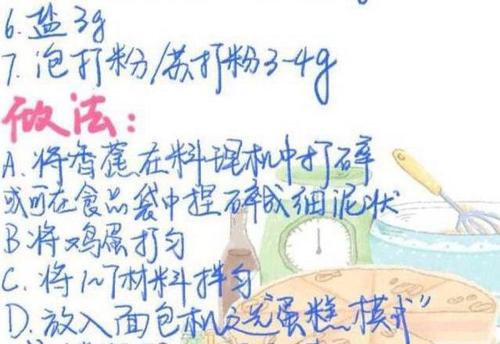 6.盐3g
7.泡打粉/苏打粉3-4g
做法:
A.将香蕉在料理机中打碎
或可在食品袋中捏碎成细泥状
B.将鸡蛋打匀
C.将1~7材料拌匀
D.放入面包机选“蛋糕模式”